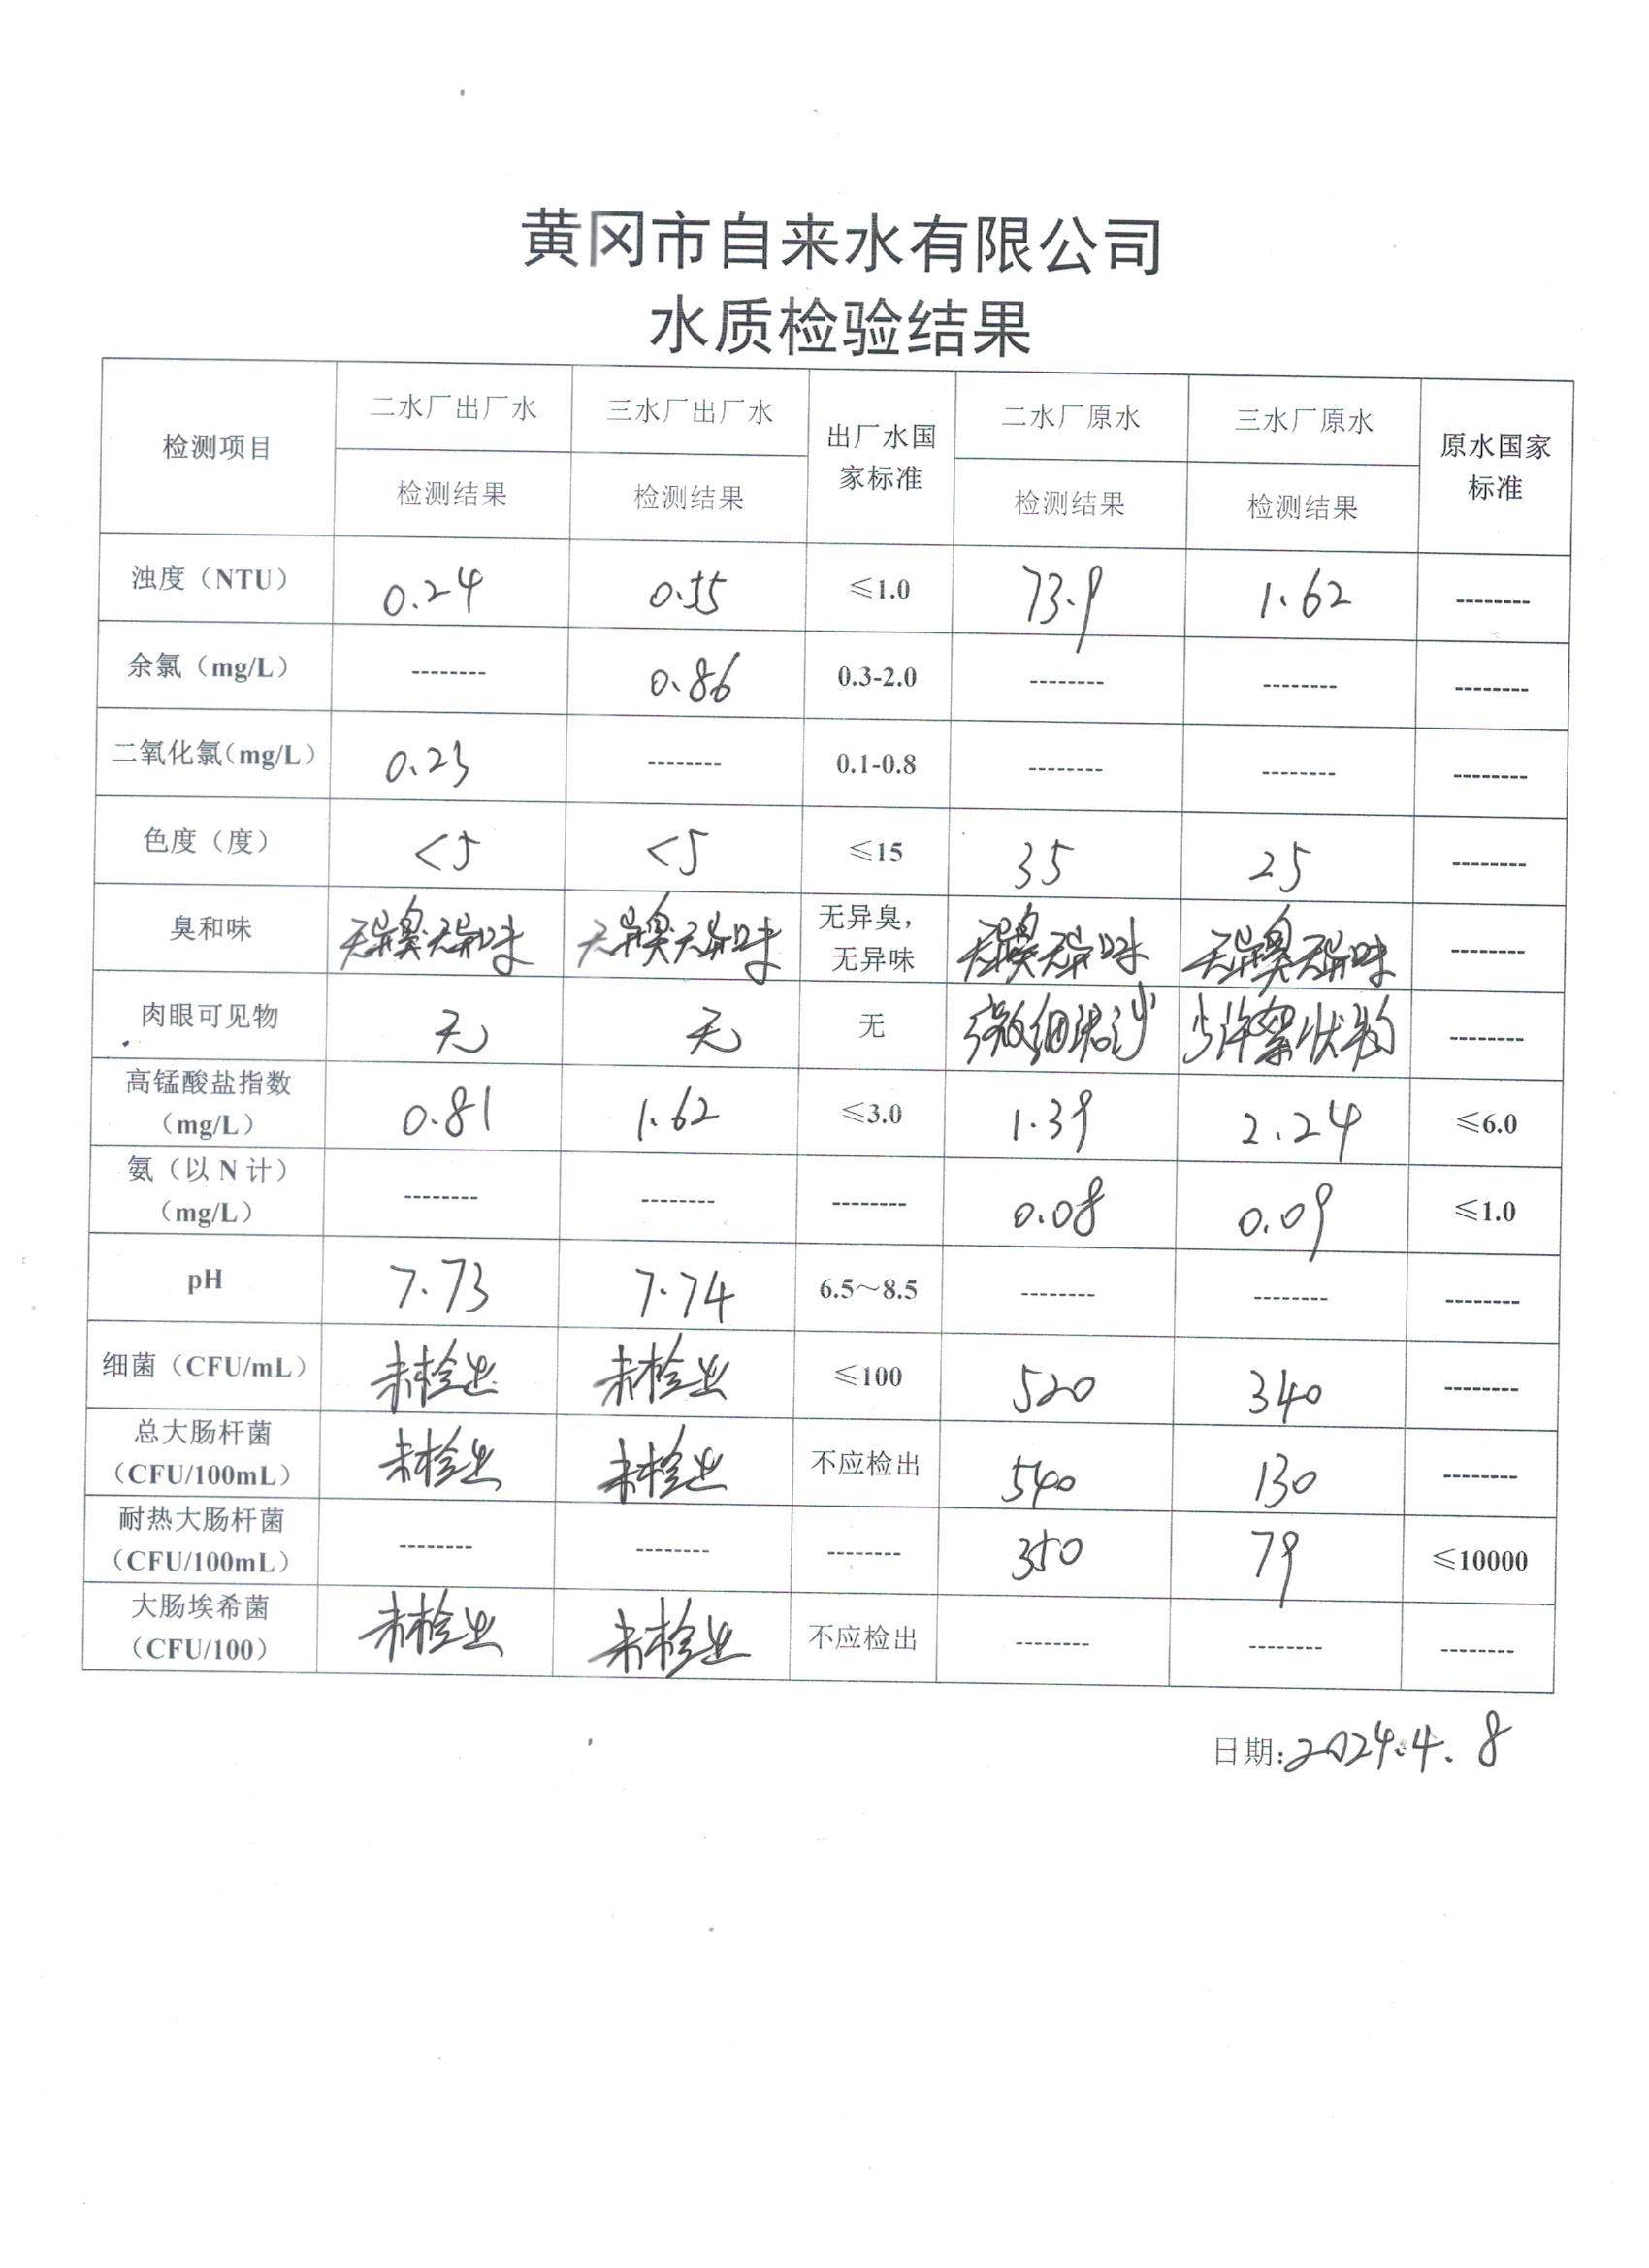 黄冈市自来水有限公司
水质检验结果
检测项目 二水厂出厂水 三水厂出厂水 出厂水国家标准 二水厂原水 三水厂原水 原水国家标准
检测结果 检测结果 检测结果 检测结果
浊度（NTU） 0.24 0.55 ≤1.0 73.9 1.62 --------
余氯（mg/L） -------- 0.86 0.3-2.0 -------- -------- --------
二氧化氯（mg/L） 0.23 -------- 0.1-0.8 -------- -------- --------
色度（度） <5 <5 ≤15 35 25 --------
臭和味 无异臭无异味 无异臭无异味 无异臭，无异味 无异臭无异味 无异臭无异味 --------
肉眼可见物 无 无 无 微细泥沙 少许絮状物 --------
高锰酸盐指数（mg/L） 0.81 1.62 ≤3.0 1.39 2.24 ≤6.0
氨（以 N 计）（mg/L） -------- -------- -------- 0.08 0.09 ≤1.0
pH 7.73 7.74 6.5～8.5 -------- -------- --------
细菌（CFU/mL） 未检出 未检出 ≤100 520 340 --------
总大肠杆菌（CFU/100mL） 未检出 未检出 不应检出 540 130 --------
耐热大肠杆菌（CFU/100mL） -------- -------- -------- 350 79 ≤10000
大肠埃希菌（CFU/100） 未检出 未检出 不应检出 -------- -------- --------
日期：2024.4.8